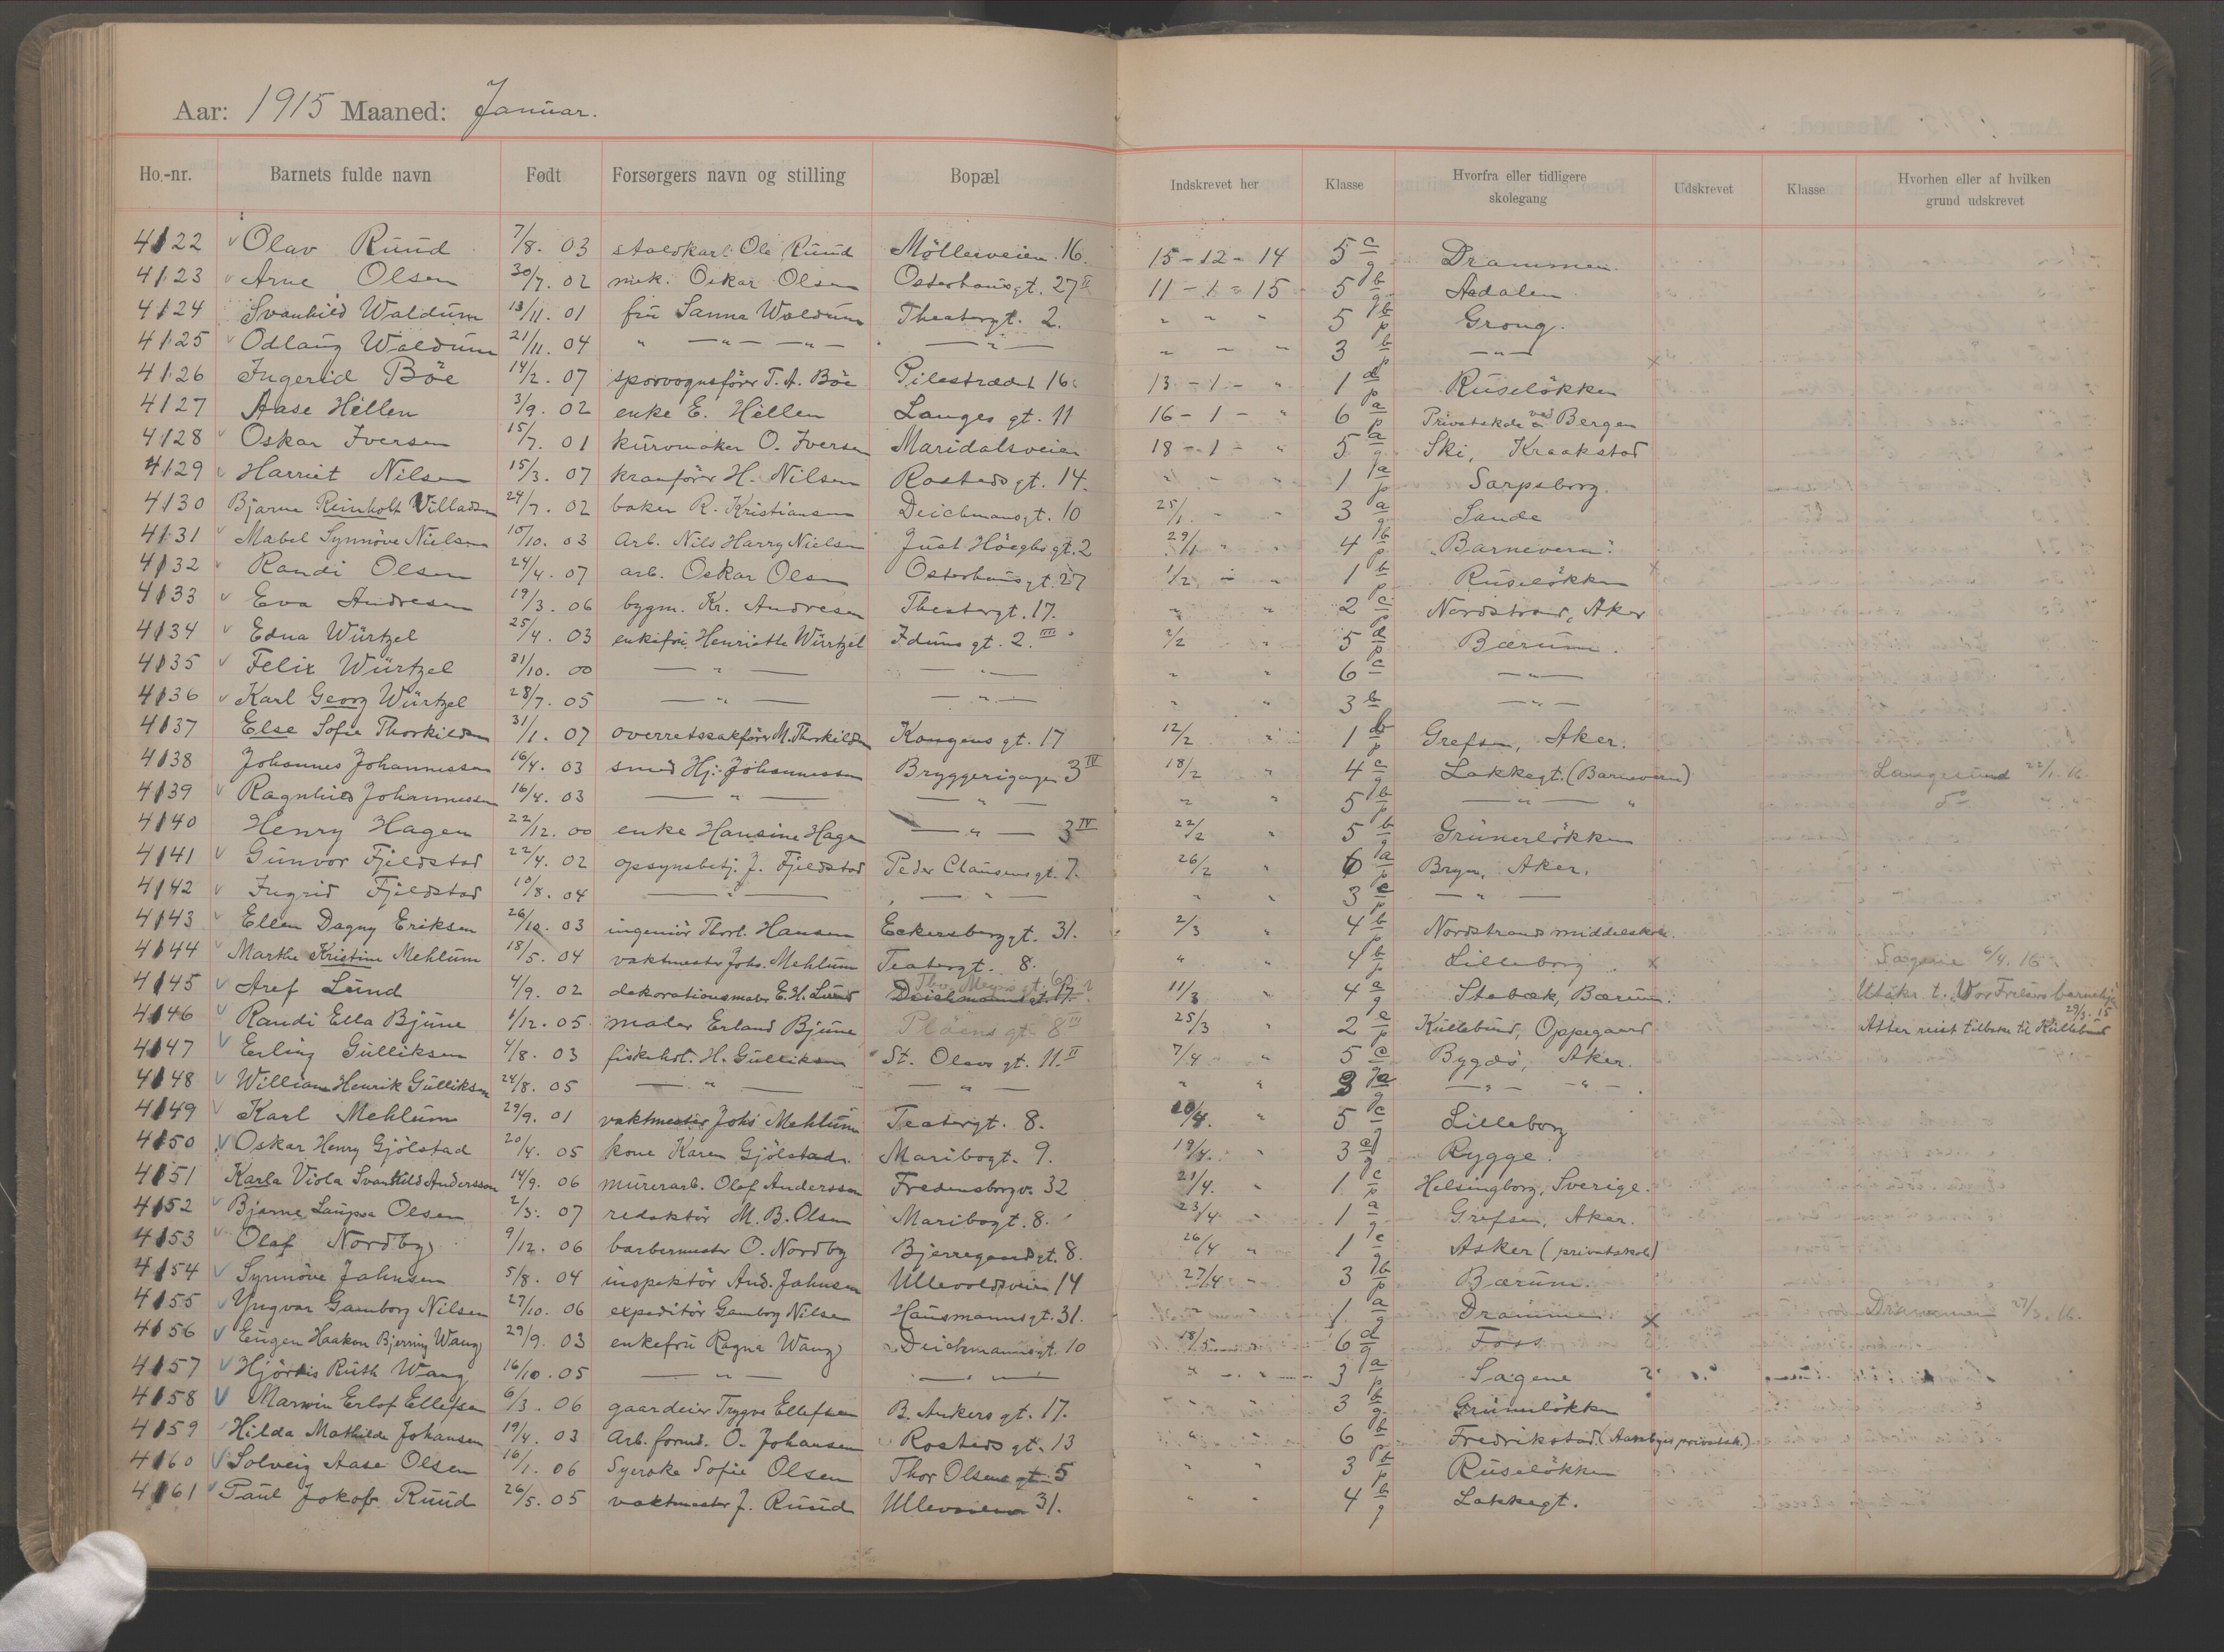 Aar: 1915 Maaned: Januar.
Ho.-nr. Barnets fulde navn Født Forsørgers navn og stilling Bopæl Indskrevet her Klasse Hvorfra eller tidligere skolegang Udskrevet Klasse Hvorhen eller af hvilken grund udskrevet
4122 Olav Ruud 7/8. 03 staldkarl Ole Ruud Möllerveien 16. 15-12-14 5 c g Drammen.
4123 Arne Olsen 30/7. 02 mek. Oskar Olsen Osterhausgt. 27 II 11-1-15 5 b g Aadalen
4124 Svanhild Waldum 13/11. 01 fru Sanna Waldum Theatergt. 2. " " " 5 b p Grong.
4125 Odlaug Waldum 21/11. 04 " —"— —"— —"— " " " 3 b p —"—
4126 Ingerid Böe 14/2. 07 sporvognsförer T. A. Böe Pilestrædet 16. 13-1-" 1 d p Ruselökken
4127 Aase Hellen 3/9. 02 enke E. Hellen Langes gt. 11 16-1-" 6 a p Privatskole ved Bergen
4128 Oskar Iversen 15/7. 01 kurvmaker O. Iversen Maridalsveien 18-1-" 5 a g Ski, Kraakstad
4129 Harriet Nilsen 15/3. 07 kranförer H. Nilsen Rosteds gt. 14. " " " 1 a p Sarpsborg.
4130 Bjarne Reinholt Villadsen 24/7. 02 baker R. Kristiansen Deichmansgt. 10 25/1. " " 3 a g Sande
4131 Mabel Synnöve Nielsen 10/10. 03 Arb. Nils Harry Nielsen Just Höeghs gt. 2 29/1 " " 4 b p "Barnevern".
4132 Randi Olsen 24/4. 07 arb. Oskar Olsen Osterhausgt. 27 1/2 " " 1 b p Ruselökken
4133 Eva Andresen 19/3. 06 bygm. Kr. Andresen Theatergt. 17. " " 2 c p Nordstrand, Aker
4134 Edna Würtzel 25/4. 03 enkefru Henriette Würtzel Iduns gt. 2. III 2/2 " 5 d p Bærum.
4135 Felix Würtzel 31/10. 00 —"— —"— " " 6 c —"—
4136 Karl Georg Würtzel 28/7. 05 —"— —"— " " 3 b —"—
4137 Else Sofie Thorkildsen 31/1. 07 overretssakförer M. Thorkildsen Kongens gt. 17 12/2 " 1 b p Grefsen, Aker.
4138 Johannes Johannessen 16/4. 03 smed Hj. Johannessen Bryggerigangen 3 IV 18/2 " 4 c g Lakkegt. (Barnevern) Langesund 22/1. 16.
4139 Ragnhild Johannessen 16/4. 03 —"— —"— " " 5 b p —"— "
4140 Henry Hagen 22/12. 00 enke Hansine Hagen —"— 3 IV 22/2 " 5 b g Grünerlökken
4141 Gunvor Fjeldstad 22/4. 02 opsynsbetj. J. Fjeldstad Peder Clausens gt. 7. 26/2 " 6 a p Bryn, Aker.
4142 Ingrid Fjeldstad 10/8. 04 —"— —"— " " 3 c p —"—
4143 Ellen Dagny Eriksen 26/10. 03 ingeniör Thorl. Hansen Eckersberggt. 31. 2/3 " 4 b p Nordstrands middelskole.
4144 Marthe Kristine Mehlum 18/5. 04 vaktmester Johs. Mehlum Teatergt. 8. " " 4 b p Lilleborg x Sagene 6/4. 15.
4145 Aref Lund 4/9. 02 dekorationsmaler E. H. Lund Deichmansgt. 17 Thv. Meyers gt. 11/3 " 4 a g Stabæk, Bærum. Utskr. t. Vor Frelsers barnehj.
4146 Randi Ella Bjune 1/12. 05. maler Erland Bjune Plöens gt. 8 III 25/3 " 2 e p Kullebund, Oppegaard 29/3. 15 Atter reist tilbake til Kullebund
4147 Erling Gulliksen 4/8. 03 fiskehdl. H. Gulliksen St. Olavs gt. 11. II 7/4 " 5 c g Bygdö, Aker.
4148 William Henrik Gulliksen 24/8. 05 —"— —"— " " 3 a g —"— —"—
4149 Karl Mehlum 29/9. 01 vaktmester Johs Mehlum Teatergt. 8. 10/4. " 5 c g Lilleborg
4150 Oskar Henry Gjölstad 20/4. 05 kone Karen Gjölstad. Maribogt. 9. 19/4. " 3 d g Rygge.
4151 Karla Viola Svanhild Andersson 14/9. 06 murerarb. Olof Andersson Fredensborgv. 32 21/4. " 1 c p Helsingborg, Sverige.
4152 Bjarne Lauppa Olsen 2/3. 07 redaktör M. B. Olsen Maribogt. 8. 23/4 " 1 a g Grefsen, Aker.
4153 Olaf Nordby 9/12. 06 barbermester O. Nordby Bjerregaardsgt. 8. 26/4 " 1 c g Asker (privatskole)
4154 Synnöve Jahnsen 5/8. 04 inspektör And. Jahnsen Ullevoldsveien 14 27/4 " 3 b p Bærum.
4155 Yngvar Gamborg Nilsen 27/10. 06 expeditör Gamborg Nilsen Hausmannsgt. 31. " " 1 a g Drammen. x Drammen 27/3. 16.
4156 Eugen Haakon Bjerning Wang 29/9. 03 enkefru Ragna Wang Deichmannsgt. 10 18/5 " 6 d g Foss
4157 Hjördis Ruth Wang 16/10. 05 —"— —"— " " 3 a p Sagene
4158 Marwin Erlof Ellefsen 6/3. 06 gaardeier Trygve Ellefsen B. Ankers gt. 17. " " 3 b g Grünerlökken
4159 Hilda Mathilde Johansen 19/4. 03 Arb. formd. O. Johansen Rosteds gt. 13 " " 6 b p Fredrikstad (Aarsbyes privatsk.)
4160 Solveig Aase Olsen 16/1. 06 Syerske Sofie Olsen Thor Olsens gt. 5 " " 3 b p Ruselökken
4161 Paul Jakob Ruud 26/5. 05 vaktmester J. Ruud Ullevveien 31. " " 4 b g Lakkegt.